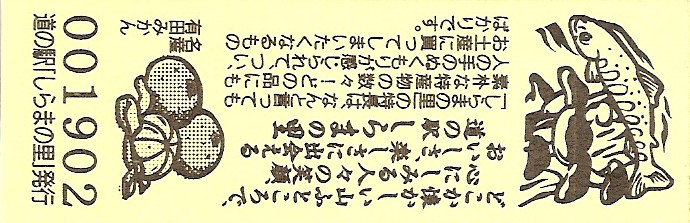 どこか懐かしい山ふところで、
心にしみる人々の笑顔
おいしさ、楽しさに出会える
道の駅 しらまの里
「しらまの里」の特長は、なんと言っても
素朴な特産物の数々!どの品にも
人の手のぬくもりが感じられて、つい、
お土産に買ってしまいたくなるもの
ばかりです。
名産
有田みかん
001902
道の駅「しらまの里」発行